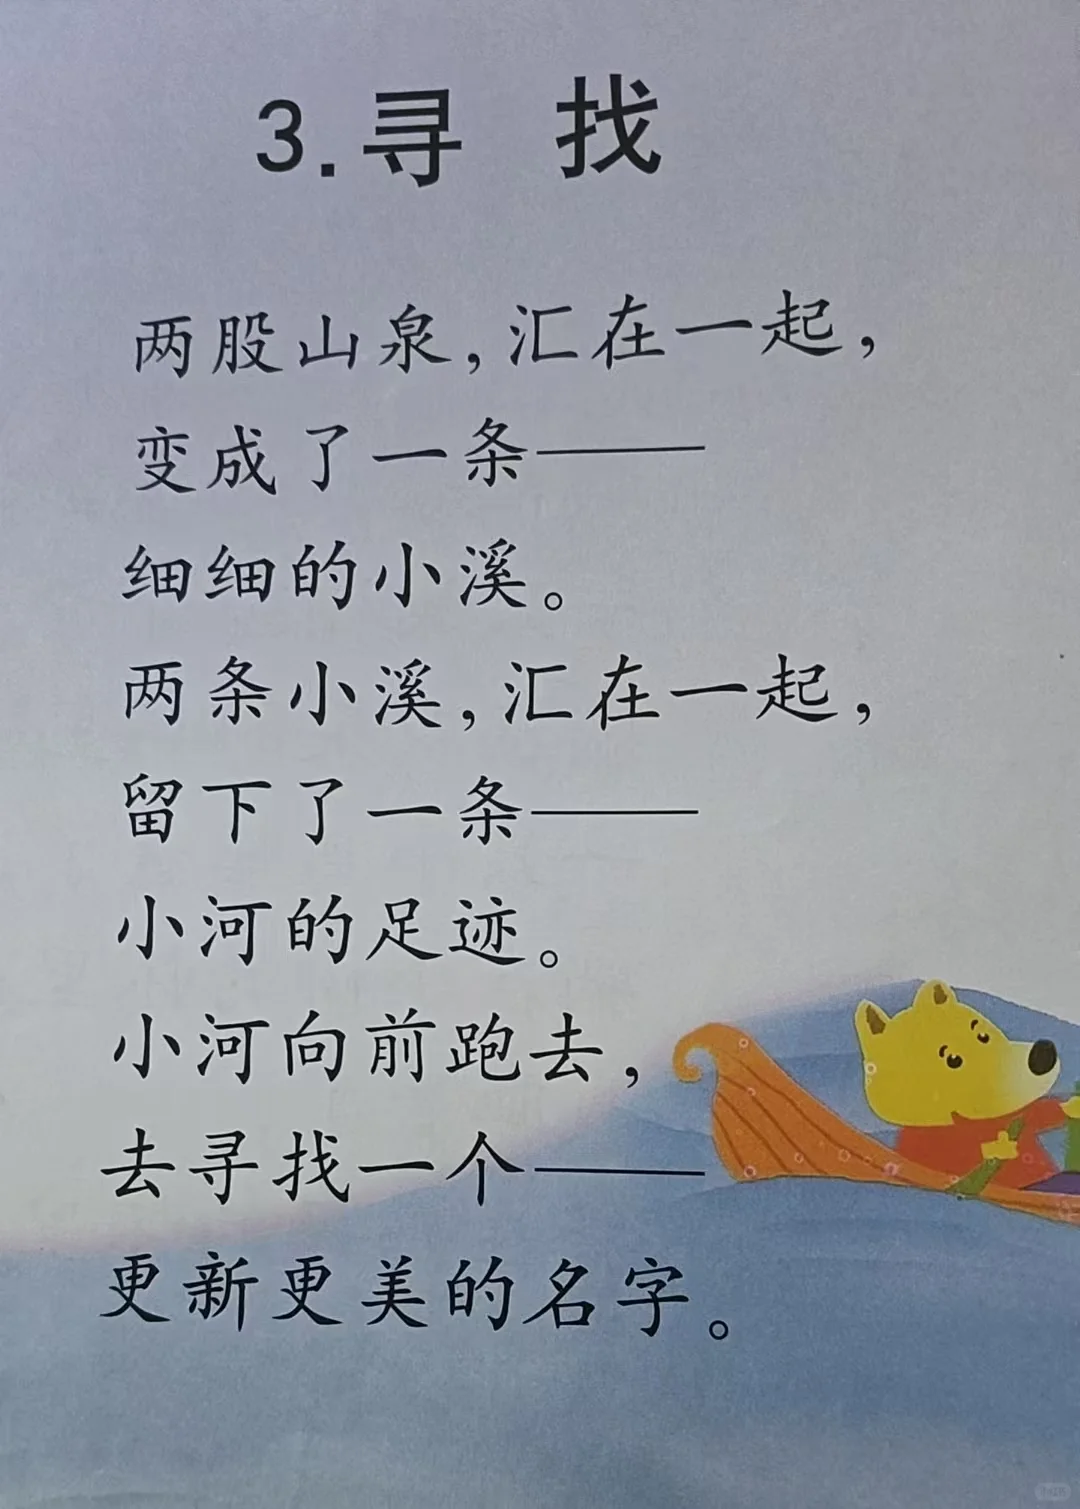 3.寻 找
两股山泉,汇在一起,
变成了一条——
细细的小溪。
两条小溪,汇在一起,
留下了一条——
小河的足迹。
小河向前跑去,
去寻找一个——
更新更美的名字。